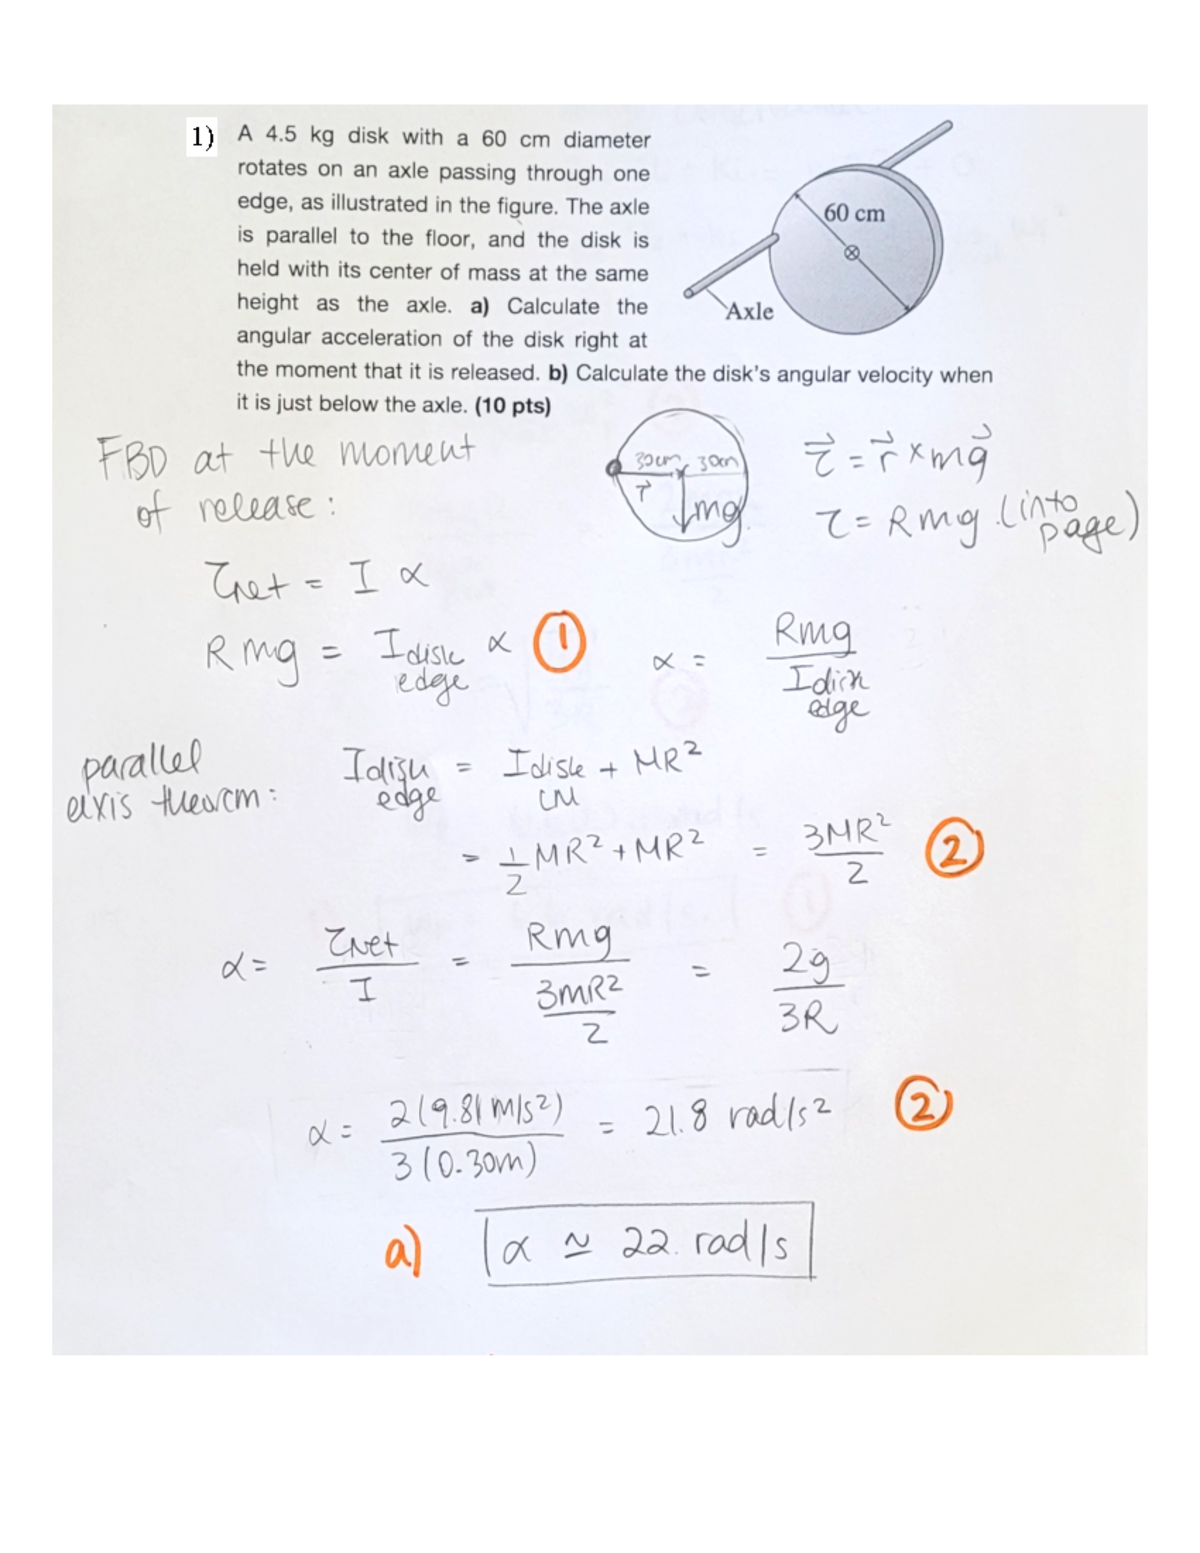 1) A 4.5 kg disk with a 60 cm diameter
rotates on an axle passing through one
edge, as illustrated in the figure. The axle
is parallel to the floor, and the disk is
held with its center of mass at the same
height as the axle. a) Calculate the
angular acceleration of the disk right at
the moment that it is released. b) Calculate the disk's angular velocity when
it is just below the axle. (10 pts)
60 cm
Axle
FBD at the moment
of release:
30cm 30cm
r⃗
mg
τ⃗ = r⃗ × mg⃗
τ = Rmg (into page)
τnet = I α
Rmg = Idisk edge α ①
α = Rmg / Idisk edge
parallel
axis theorem:
Idisk edge = Idisk CM + MR²
= 1/2 MR² + MR² = 3MR²/2 ②
α = τNet / I = Rmg / (3mR²/2) = 2g / 3R
α = 2(9.81 m/s²) / 3(0.30m) = 21.8 rad/s² ②
a) α ≃ 22. rad/s